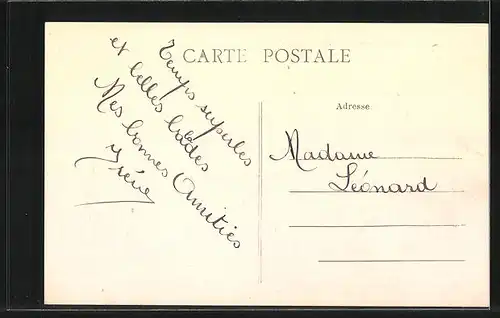 CARTE POSTALE
Temps superbes
et belles balades
Mes bonnes Amitiés
Irène
Adresse
Madame
Léonard